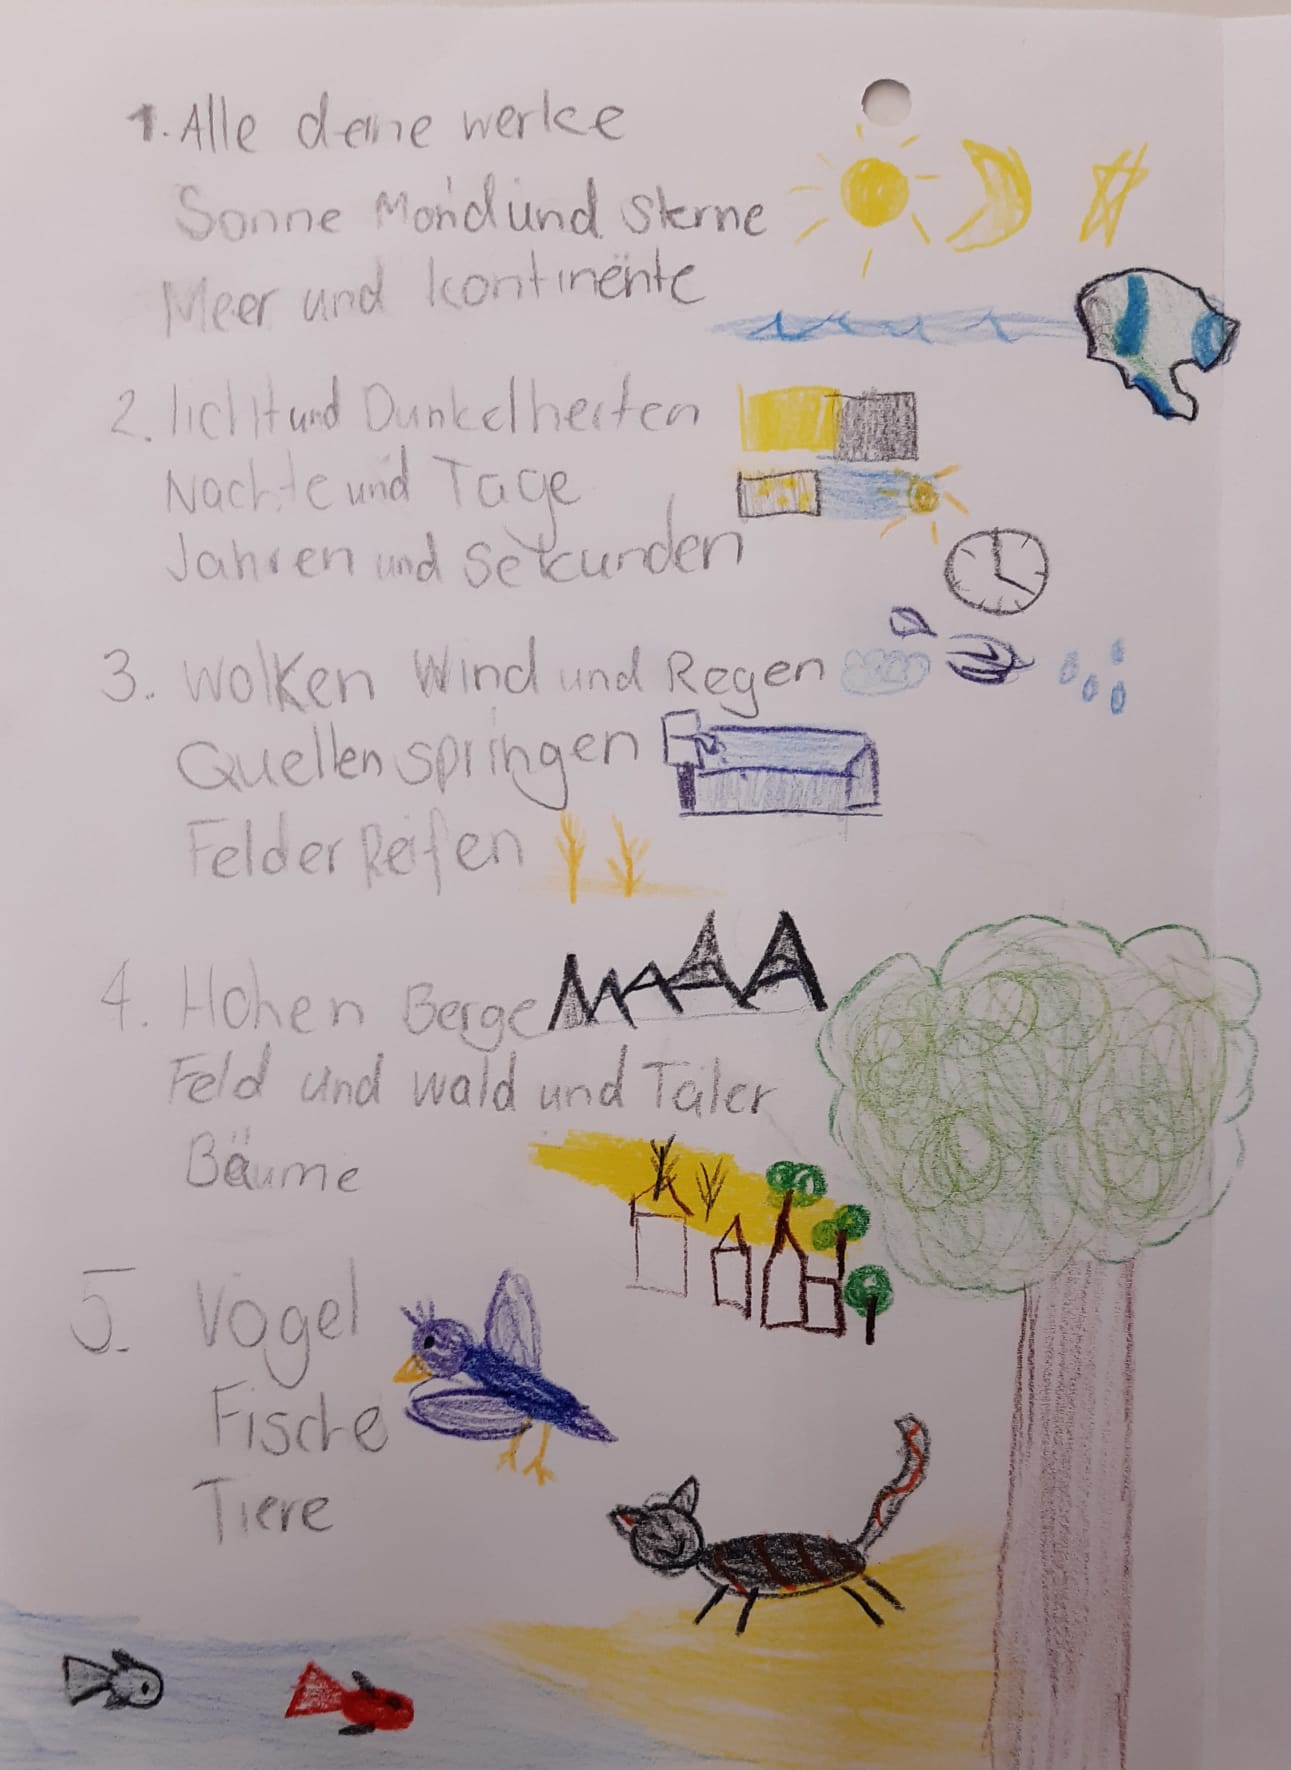 1. Alle deine werke
Sonne Mond und Sterne
Meer und kontinente
2. licht und Dunkelheiten
Nachte und Tage
Jahren und Sekunden
3. Wolken Wind und Regen
Quellen springen
Felder Reifen
4. Hohen Berge
Feld und wald und Täler
Bäume
5. Vogel
Fische
Tiere